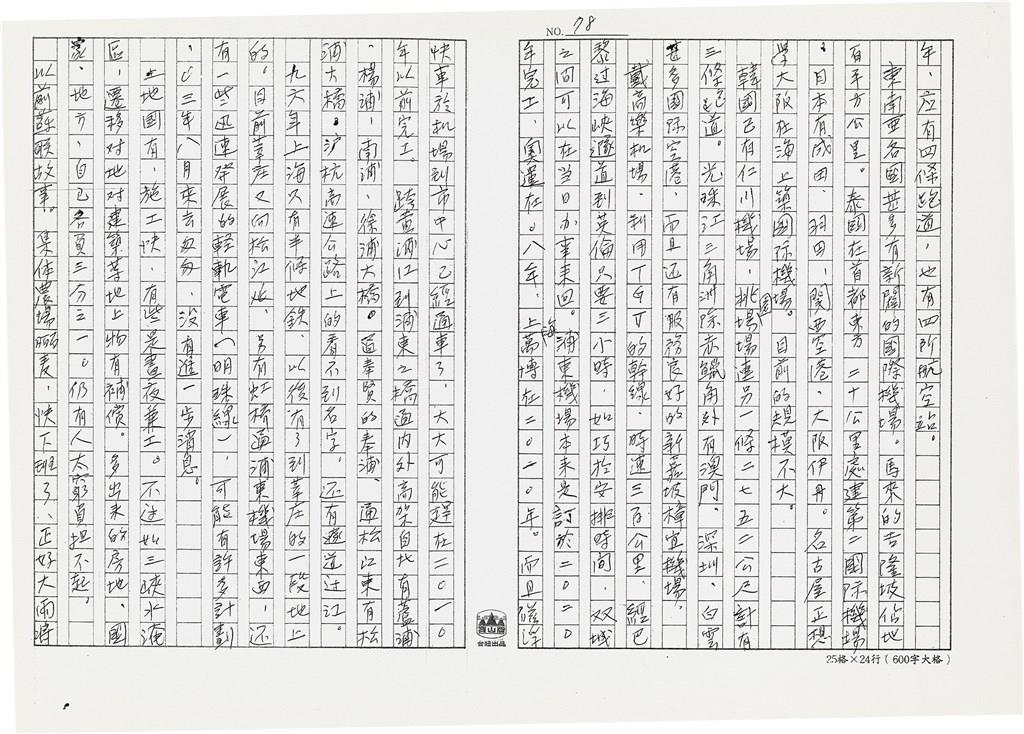 NO. 78
年,应有四條跑道,也有四所航空站。
東南亜各國甚多有新闢的國際機場。馬來的吉隆坡佔地
百平方公里。泰國在首都東方二十公里處建第二國际機場
。日本有成田、羽田、関西空港、大阪伊丹。名古屋正想
學大阪在海上築國际機場。目前的規模不大。
韓國已有仁川機場,挑場場連另一條二七五二公尺計有
三條跑道。光珠江三角洲除赤鱲角外有澳門、深圳、白雲
甚多國际空港。而且还有服務良好的新嘉坡樟宜機場。
戴高樂机場,利用TGV的幹線,時速三百公里,經巴
黎过海峡隧道到英倫只要三小時,如巧於安排時间,双城
之间可以在当日办事来回。浦東機場本来是訂於二〇二〇
年完工,奧運在〇八年,上海萬博在二〇一〇年。而且磁浮
快車於机場到市中心已經通車了,大大可能趕在二〇一〇
年以前完工。跨黄浦江到浦東之橋通内外高架自北有蘆浦
、楊浦、南浦、徐浦大橋。道奉賢的奉浦、通松江東有松
浦大橋。沪杭高速公路上的看不到名字。还有遂道过江。
九六年上海只有半條地鉄,以後有了到莘庄的一段地上
的。目前莘庄又向松江㶣,另有虹橋通浦東機場東西,还
有一些迅速發展的軽軌電車(明珠線),可能有許多計劃
,〇三年八月来去匆匆,没有進一步消息。
土地國有,施工快,有些是晝夜兼工。不过如三峽水淹
區,遷移对地对建築草地上物有補償。多出来的房地,國
家、地方、自己各負三分之一。仍有人太窮負担不起。
以前蘇联故事。集体農場刪麦,快下班了、正好大雨將
25格×24行(600字大格)
台紐出品